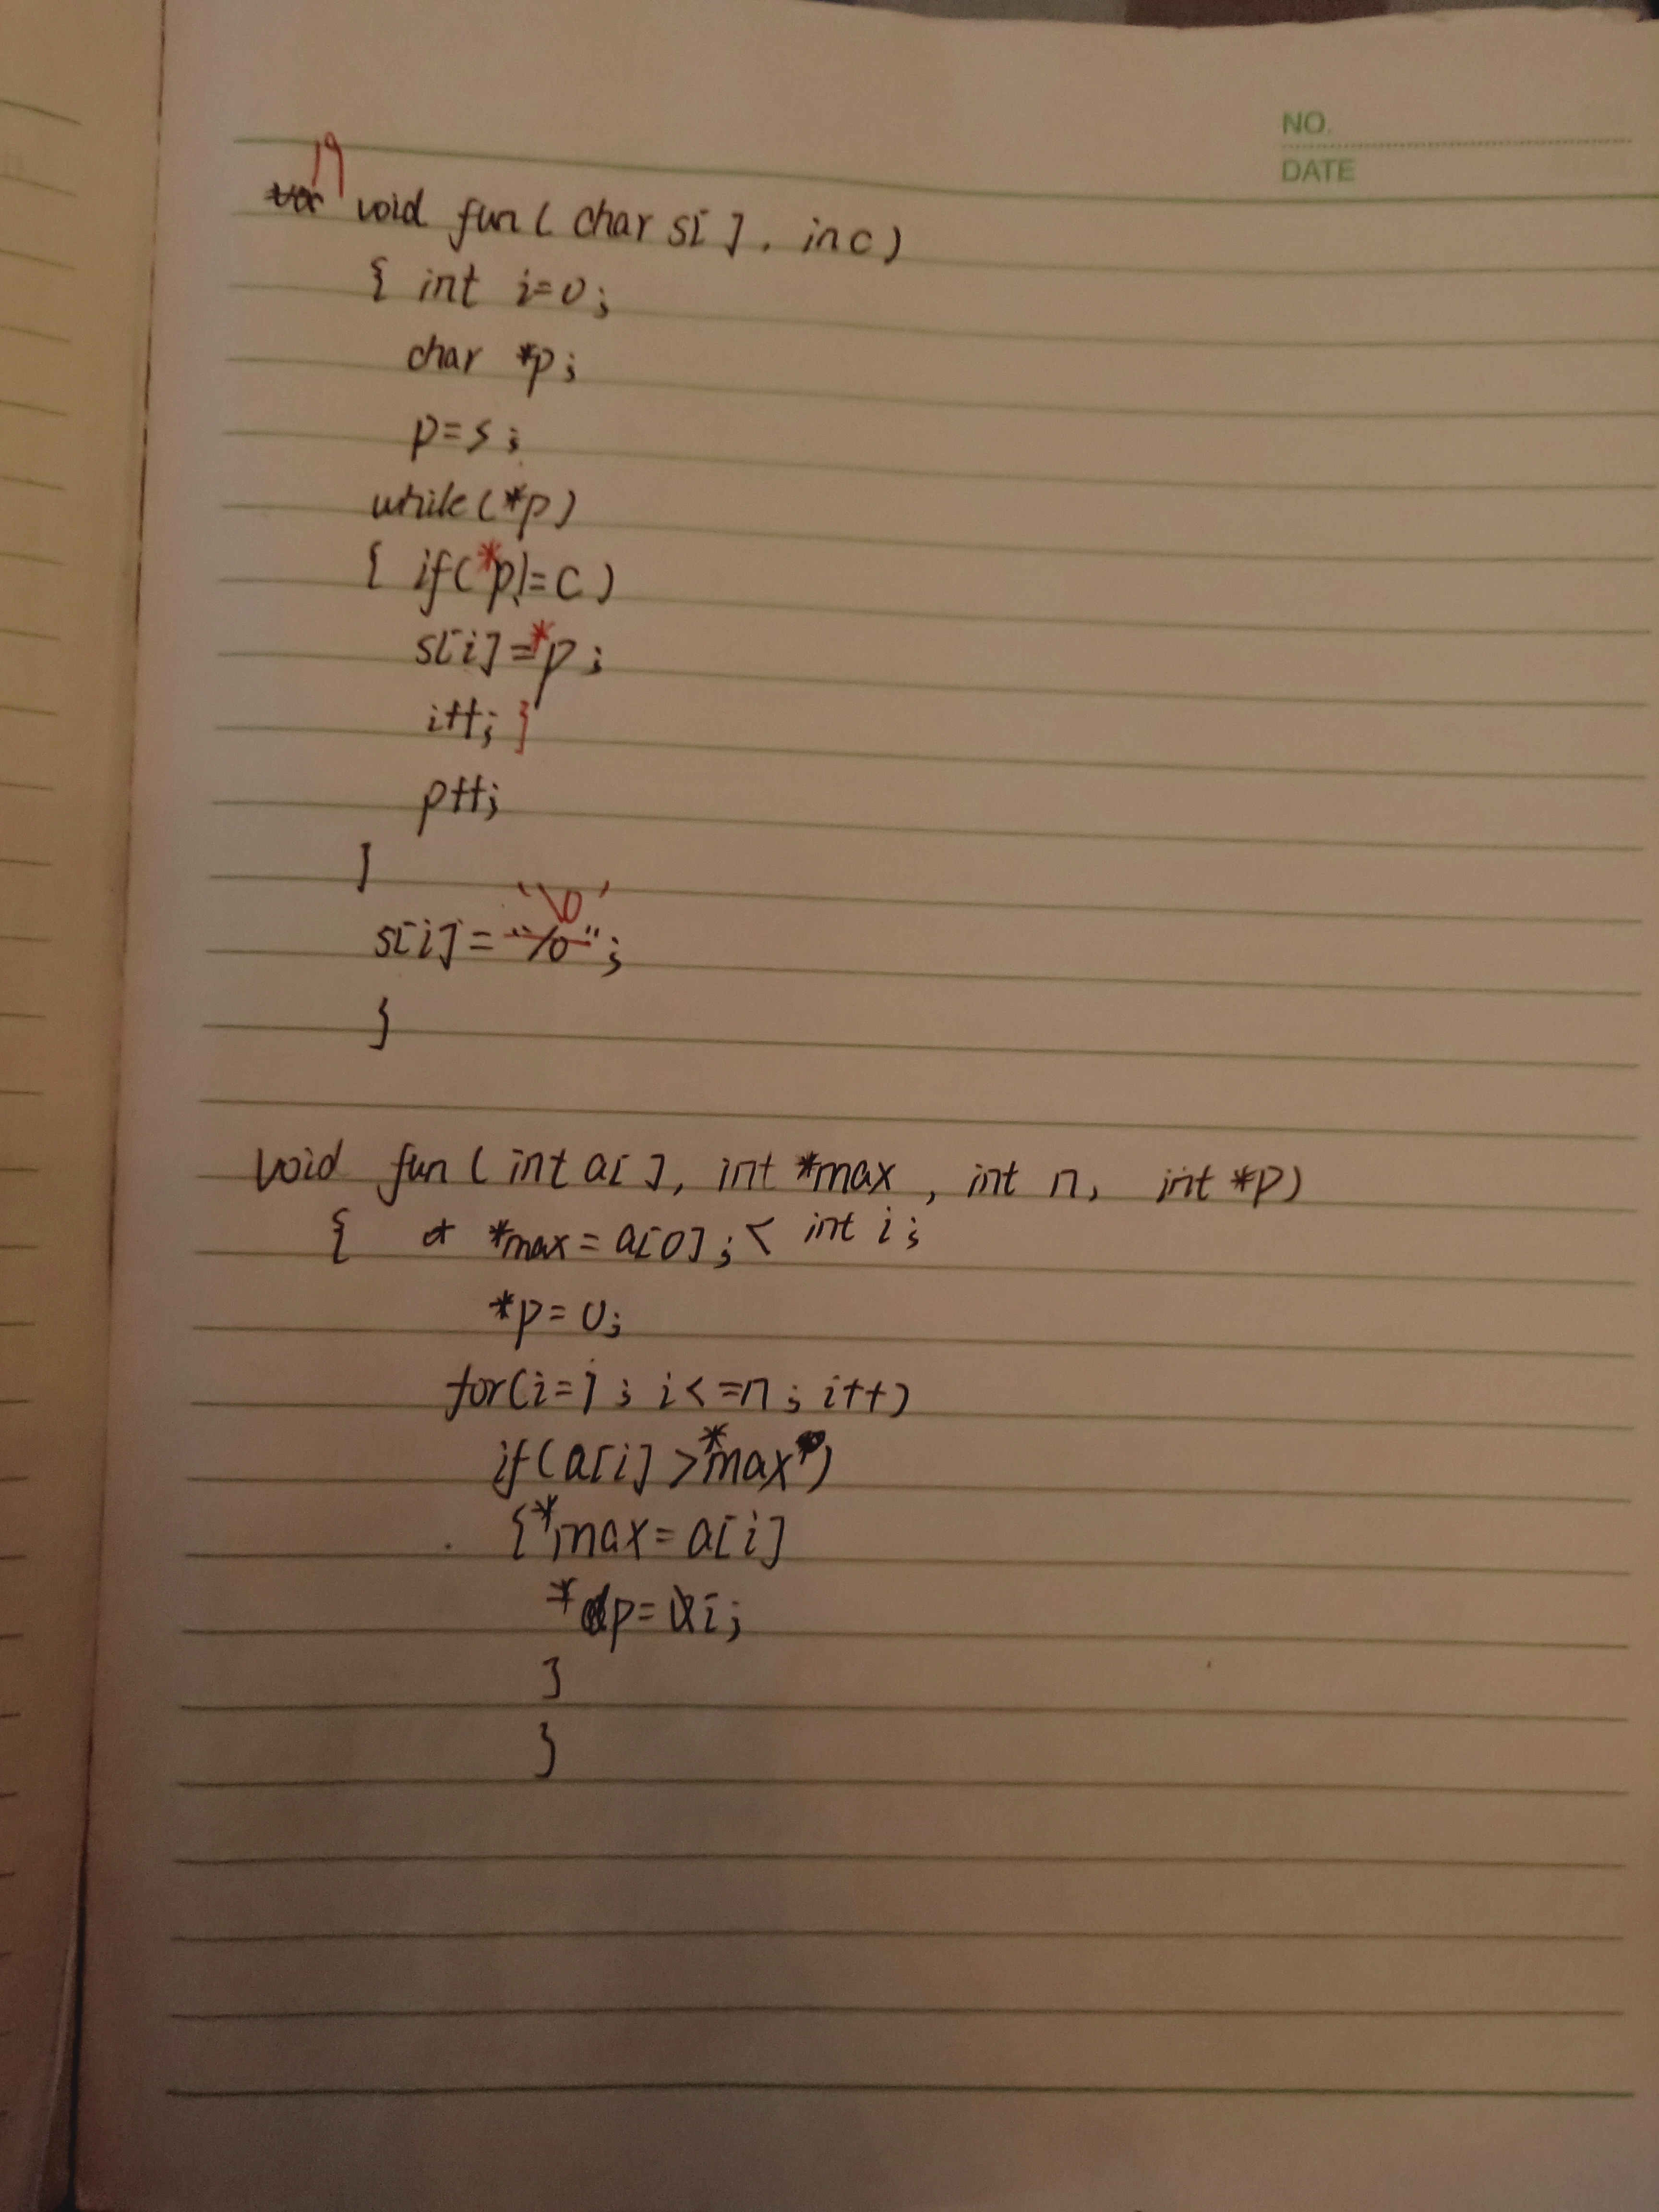 NO.
DATE
19
void fun( char s[ ], in c)
{ int i=0;
char *p;
p=s;
while(*p)
{ if(*p!=c)
s[i]=*p;
i++; }
p++;
}
'\0'
s[i]="%0";
}
void fun(int a[ ], int *max, int n, int *p)
{ *max=a[0];< int i;
*p=0;
for(i=1; i<=n; i++)
if(a[i]>*max)
{*max=a[i]
*p=i;
}
}